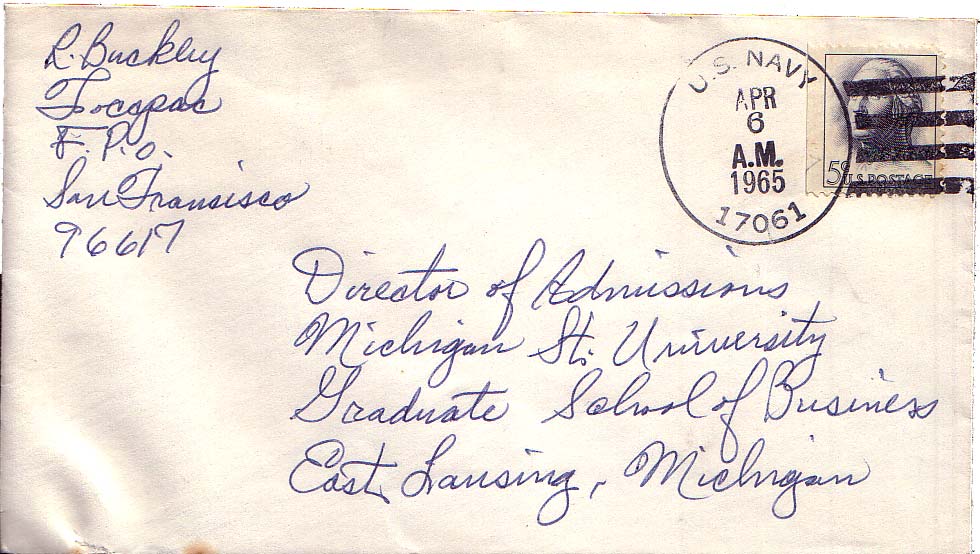 R. Buckley
Focgpac
F.P.O.
San Fransisco
96617
U.S. NAVY
APR
6
A.M.
1965
17061
5¢ U.S. POSTAGE
Director of Admissions
Michigan St. University
Graduate School of Business
East Lansing, Michigan